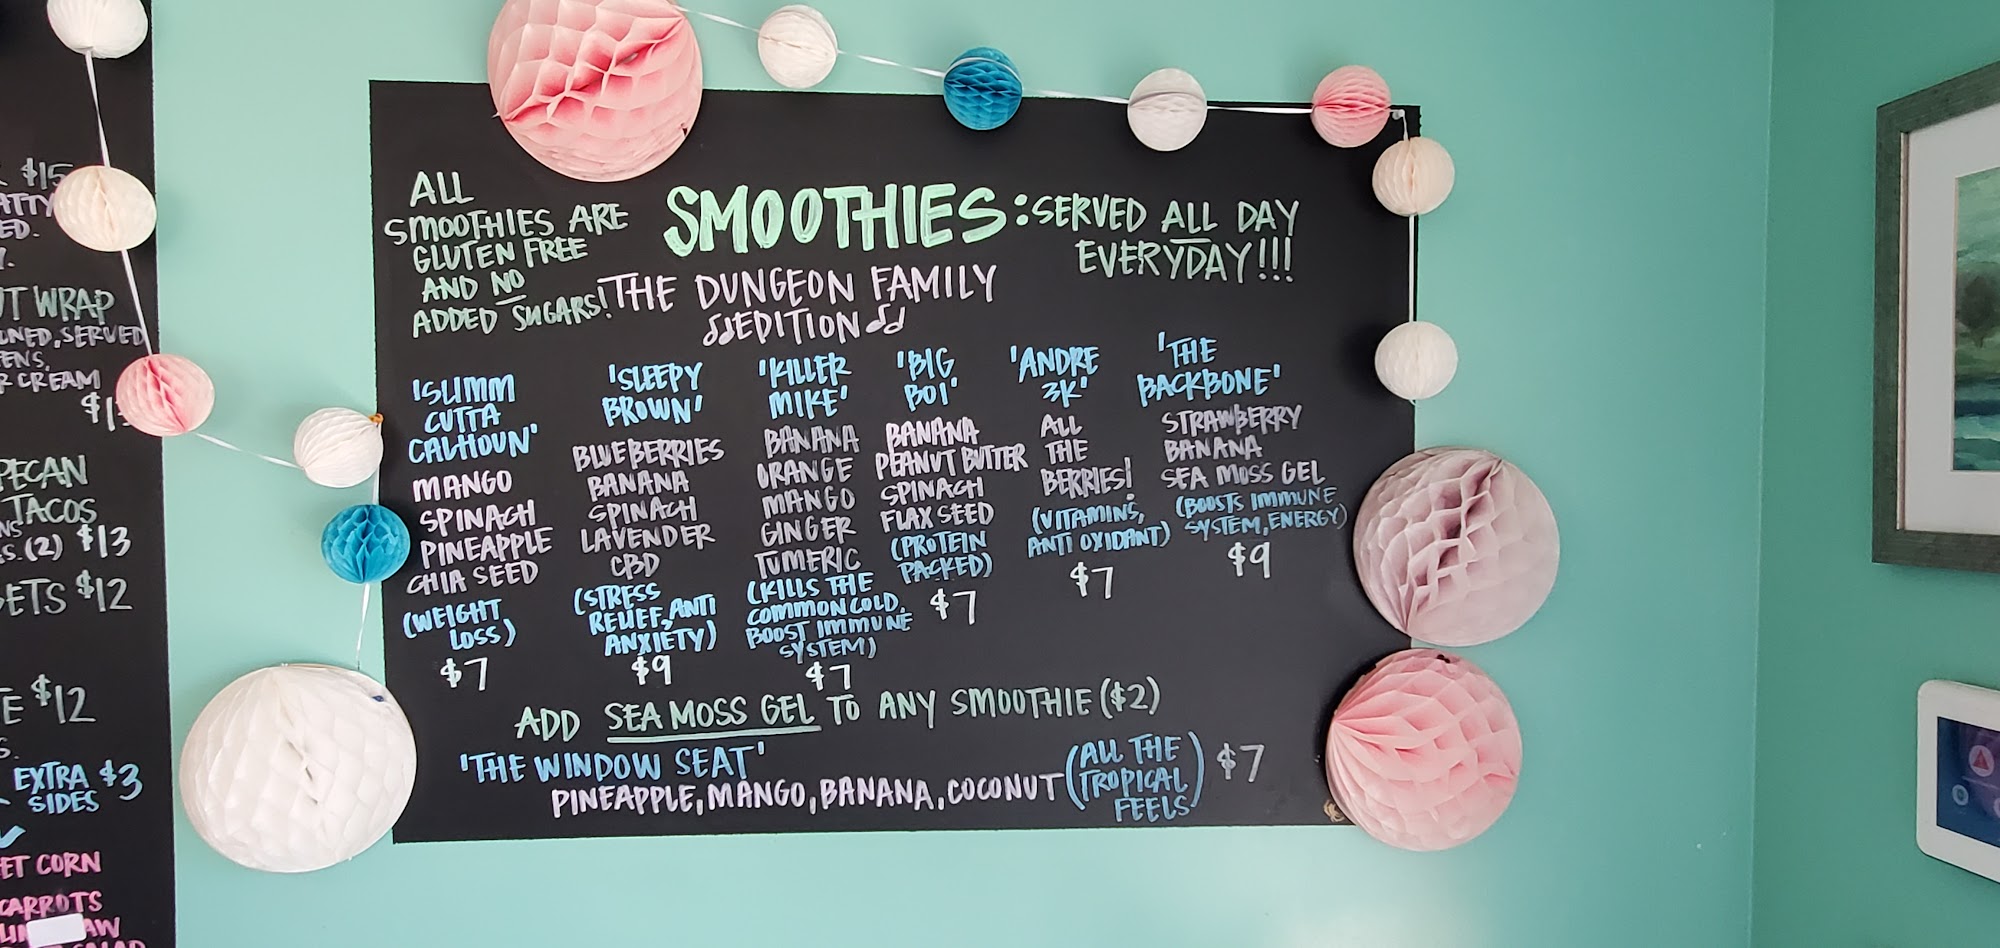 $15
ATTY
ED.
WRAP
NED, SERVED
ENS,
CREAM
PECAN
TACOS
(2) $13
ETS $12
E $12
EXTRA $3
SIDES
ET CORN
CARROTS
AW
ALL
SMOOTHIES ARE
GLUTEN FREE
AND NO
ADDED SUGARS!
SMOOTHIES: SERVED ALL DAY
EVERYDAY!!!
THE DUNGEON FAMILY
♫EDITION♫
'SLIMM
CUTTA
CALHOUN'
MANGO
SPINACH
PINEAPPLE
CHIA SEED
(WEIGHT
LOSS)
$7
'SLEEPY
BROWN'
BLUEBERRIES
BANANA
SPINACH
LAVENDER
CBD
(STRESS
RELIEF, ANTI
ANXIETY)
$9
'KILLER
MIKE'
BANANA
ORANGE
MANGO
GINGER
TUMERIC
(KILLS THE
COMMON COLD,
BOOST IMMUNE
SYSTEM)
$7
'BIG
BOI'
BANANA
PEANUT BUTTER
SPINACH
FLAX SEED
(PROTEIN
PACKED)
$7
'ANDRE
3K'
ALL
THE
BERRIES!
(VITAMINS,
ANTI OXIDANT)
$7
'THE
BACKBONE'
STRAWBERRY
BANANA
SEA MOSS GEL
(BOOSTS IMMUNE
SYSTEM, ENERGY)
$9
ADD SEA MOSS GEL TO ANY SMOOTHIE ($2)
'THE WINDOW SEAT'
PINEAPPLE, MANGO, BANANA, COCONUT (ALL THE
TROPICAL
FEELS) $7